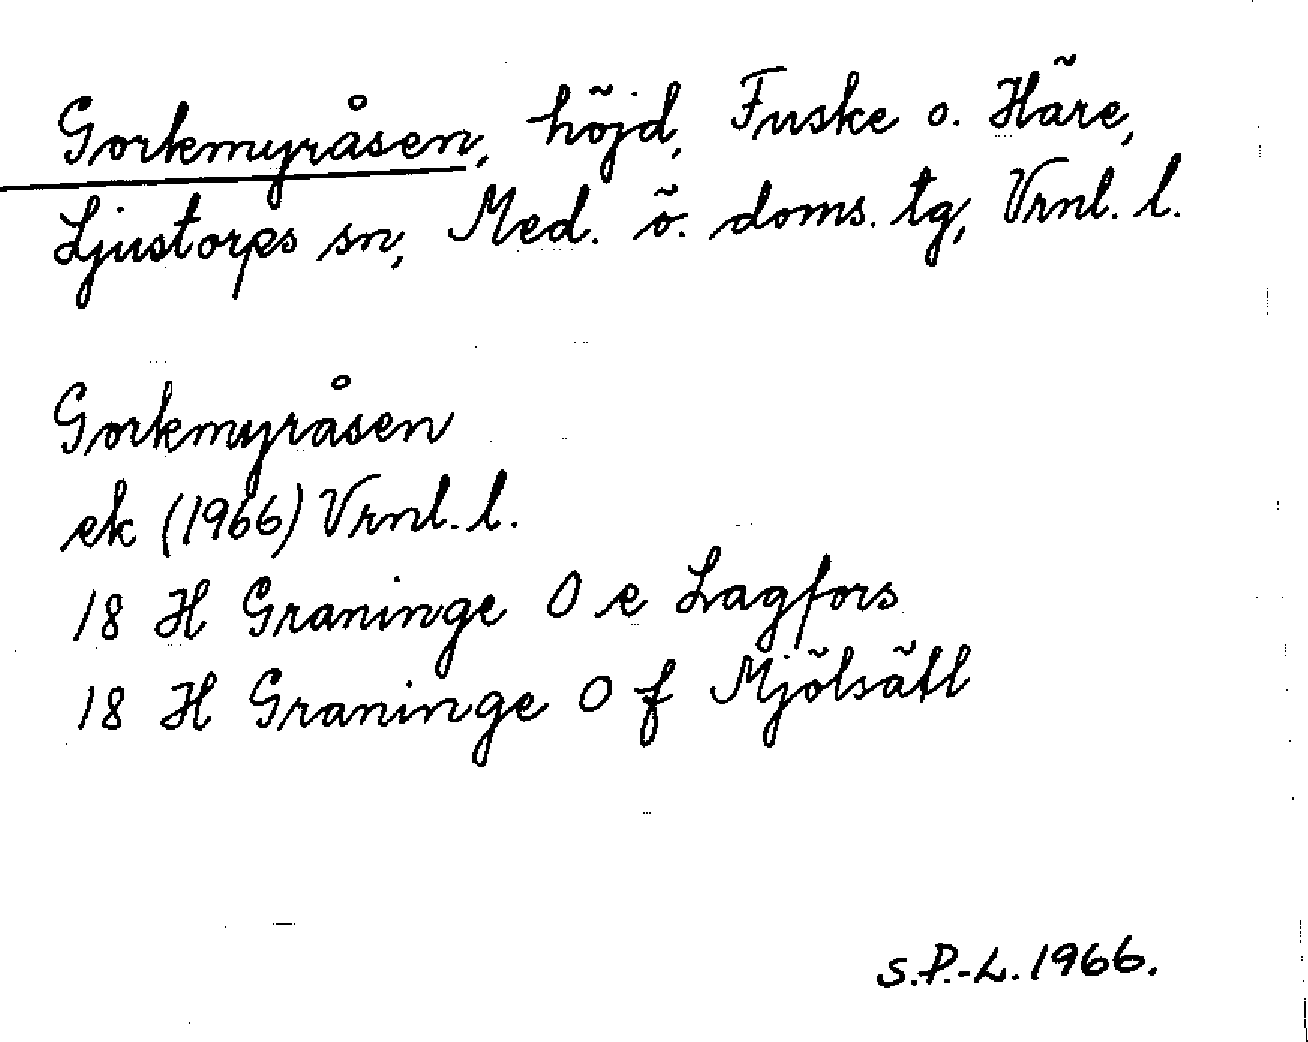 Gorkmyråsen, höjd, Fuske o. Häre,
Ljustorps sn, Med. ö. doms. tg, Vrnl. l.
Gorkmyråsen
ek (1966) Vrnl. l.
18 H Graninge O e Lagfors
18 H Graninge O f Mjölsätl
S.P.-L. 1966.